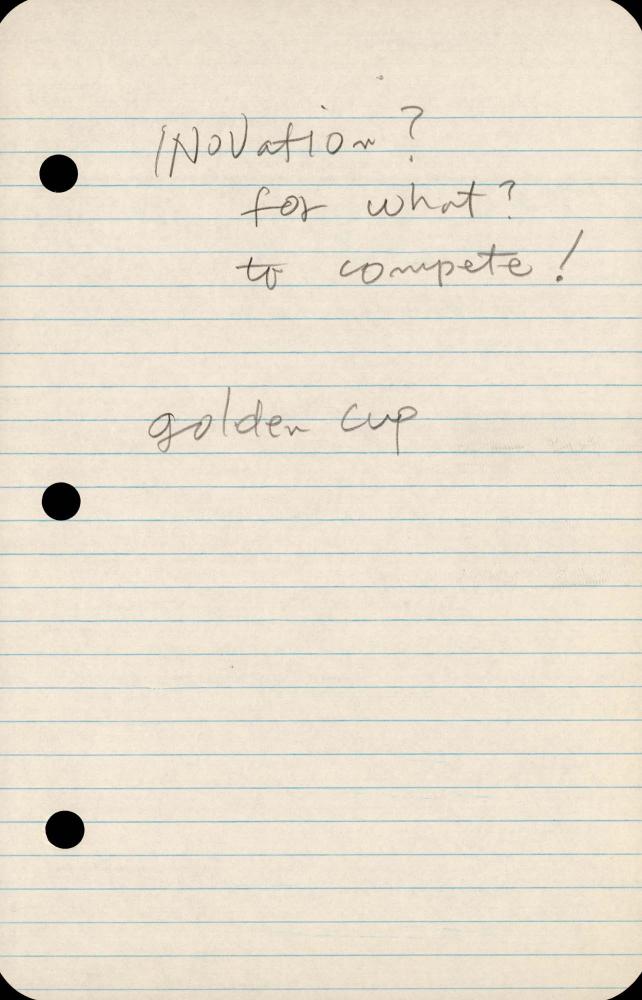 INOVation?
for what?
to compete!
golden cup